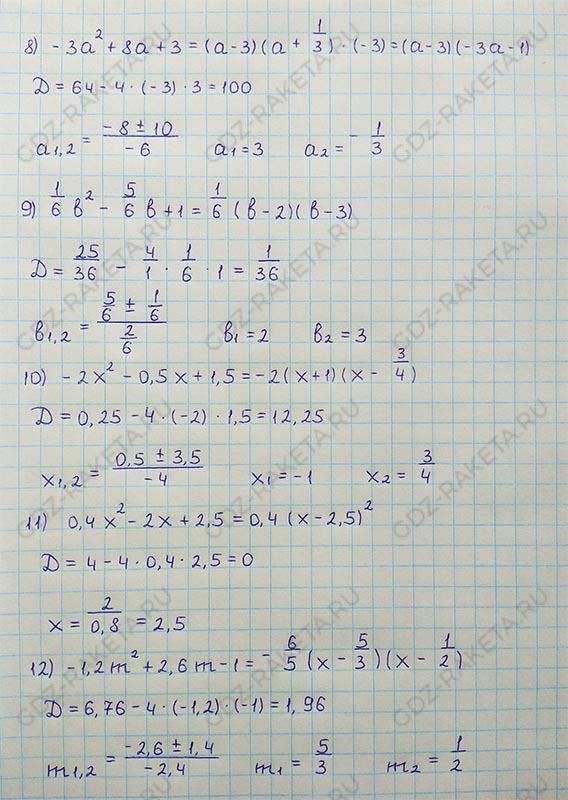 8) -3a² + 8a + 3 = (a-3)(a + 1/3)·(-3) = (a-3)(-3a-1)
D = 64 - 4·(-3)·3 = 100
a₁,₂ = (-8 ± 10)/(-6) a₁ = 3 a₂ = -1/3
9) 1/6 b² - 5/6 b + 1 = 1/6 (b-2)(b-3)
D = 25/36 - 4/1 · 1/6 · 1 = 1/36
b₁,₂ = (5/6 ± 1/6)/(2/6) b₁ = 2 b₂ = 3
10) -2x² - 0,5x + 1,5 = -2(x+1)(x - 3/4)
D = 0,25 - 4·(-2)·1,5 = 12,25
x₁,₂ = (0,5 ± 3,5)/(-4) x₁ = -1 x₂ = 3/4
11) 0,4x² - 2x + 2,5 = 0,4(x-2,5)²
D = 4 - 4·0,4·2,5 = 0
x = 2/0,8 = 2,5
12) -1,2m² + 2,6m - 1 = -6/5 (x - 5/3)(x - 1/2)
D = 6,76 - 4·(-1,2)·(-1) = 1,96
m₁,₂ = (-2,6 ± 1,4)/(-2,4) m₁ = 5/3 m₂ = 1/2
GDZ-RAKETA.RU